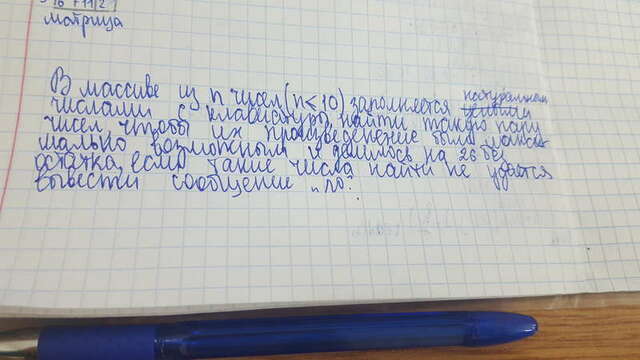 матрица
В массиве из n чисел (n≤10) заполняется натуральными
числами с клавиатуры, найти такую пару
чисел, чтобы их произведенение было макси-
мально возможным и делилось на 26 без
остатка, если такие числа найти не удается
вывести сообщение „no”